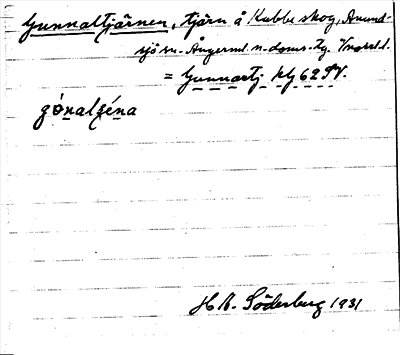 Gunnaltjärnen, tjärn å Kubbe skog, Anund-
sjö sn. Ångerml. n. doms. tg. Vnorrl l.
= Gunnartj. blg 62 SV.
gónalʒéna
H. Söderberg 1931